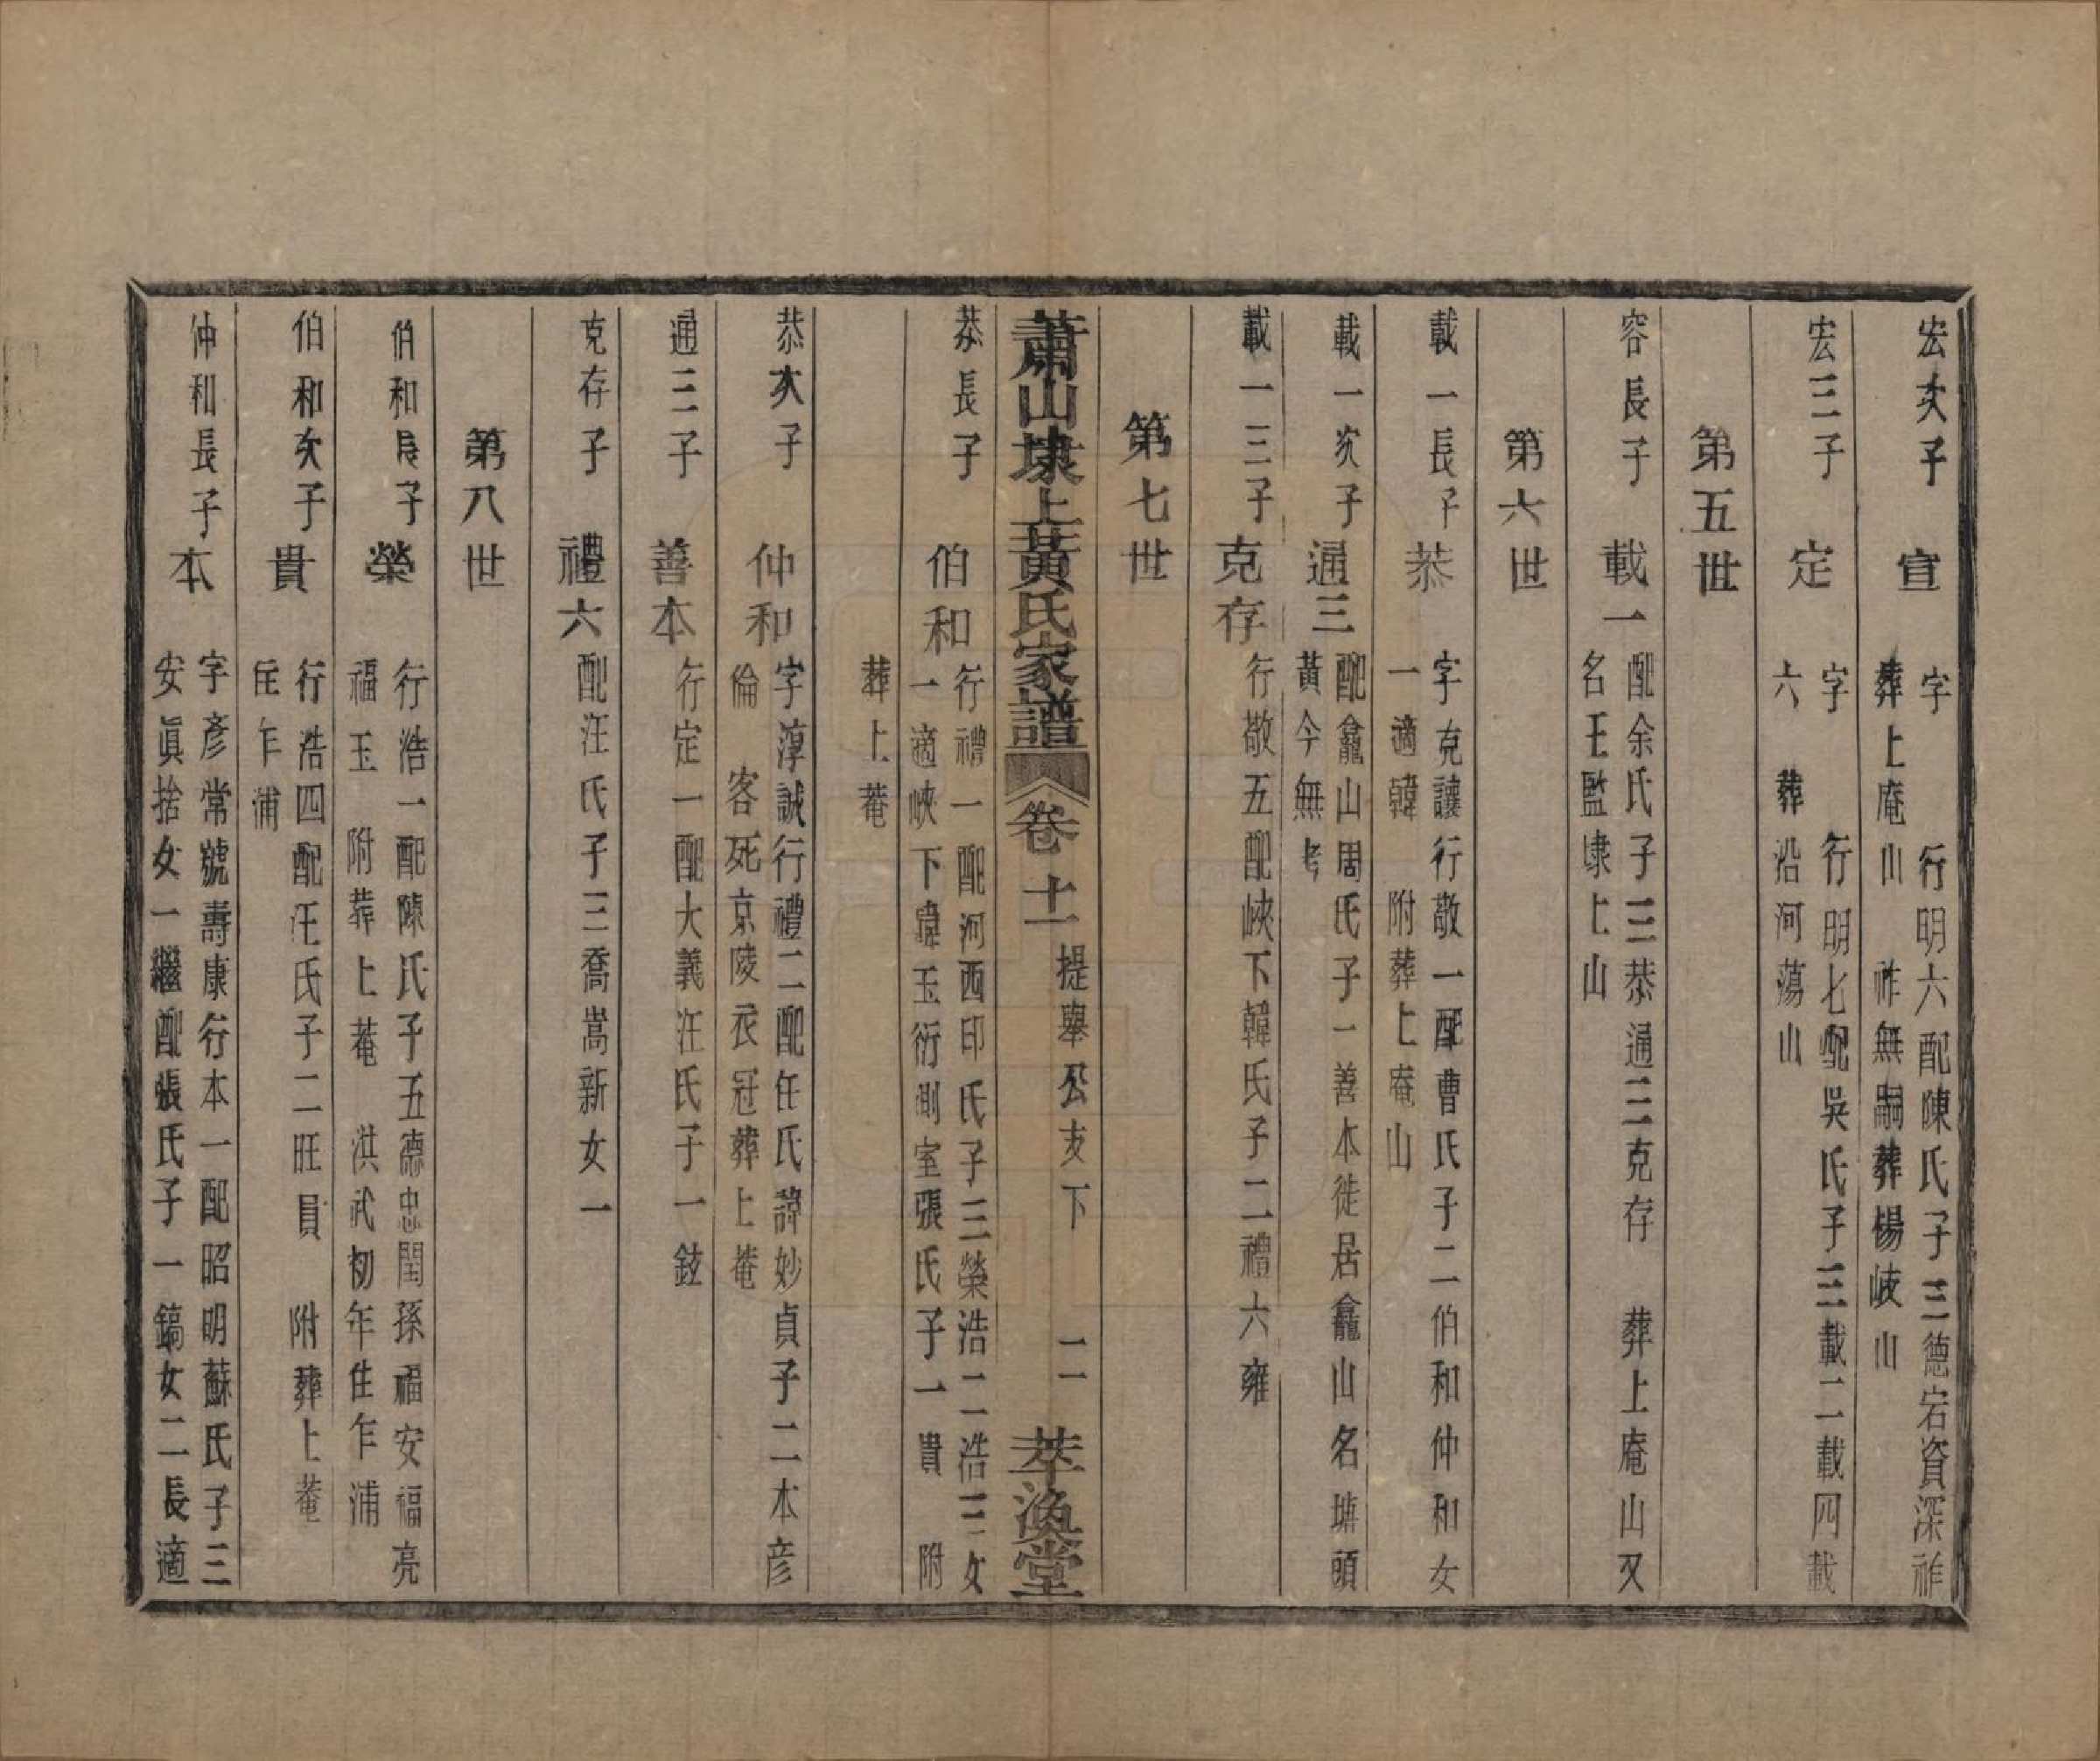 宏次子　宣　字　　行明六配陳氏子三德岩資深祚
葬上庵山　祚無嗣葬楊岐山
宏三子　定　字　　行明七配吳氏子三載二載四載
六　葬沿河蕩山
第五世
容長子　載一　配余氏子三恭通三克存　葬上庵山又
名王監埭上山
第六世
載一長子　恭　字克讓行敬一配曹氏子二伯和仲和女
一適韓　附葬上庵山
載一次子　通三　配龕山周氏子一善本徙居龕山名塘頭
黃今無考
載一三子　克存　行敬五配峽下韓氏子二禮六雍
第七世
蕭山埭上黃氏家譜　卷十一　提舉公支下　二　萃渙堂
恭長子　伯和　行禮一配河西印氏子三榮浩二浩三女
一適峽下韓玉衍側室張氏子一貴　附
葬上菴
恭次子　仲和　字淳誠行禮二配任氏諱妙貞子二本彥
倫　客死京陵衣冠葬上菴
通三子　善本　行定一配大義汪氏子一鉉
克存子　禮六　配汪氏子三喬嵩新女一
第八世
伯和長子　榮　行浩一配陳氏子五德忠閏孫福安福亮
福玉　附葬上菴　洪武初年住乍浦
伯和次子　貴　行浩四配汪氏子二旺員　附葬上菴
住乍浦
仲和長子　本　字彥常號壽康行本一配昭明蘇氏子三
安眞捨女一繼配張氏子一鎬女二長適